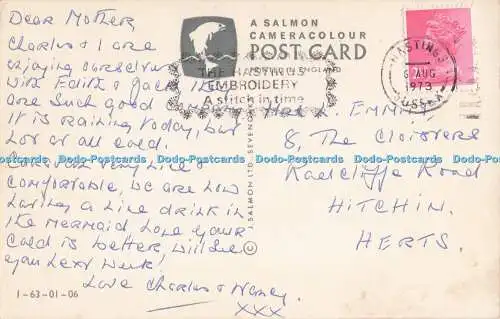 Dear Mother
Charles & I are
enjoying ourselves
with Edith & Jack they
are such good company
It is raining today, but
not at all cold.
Caravan very nice &
comfortable, we are now
having a nice drink in
the Mermaid hope your
cold is better will see
you next week!
Love Charles & Nancy.
xxx
1-63-01-06
A SALMON
CAMERACOLOUR
POST CARD
PRINTED IN ENGLAND
THE HASTINGS
EMBROIDERY
A stitch in time
HASTINGS
6 AUG
1973
SUSSEX
Mrs L. EMMY
8, The Cloisters
Radcliffe Road
HITCHIN.
HERTS.
J. SALMON LTD., SEVENOAKS ©
Dodo-Postcards Dodo-Postcards Dodo-Postcards Dodo-Postcards Dodo-Postcards